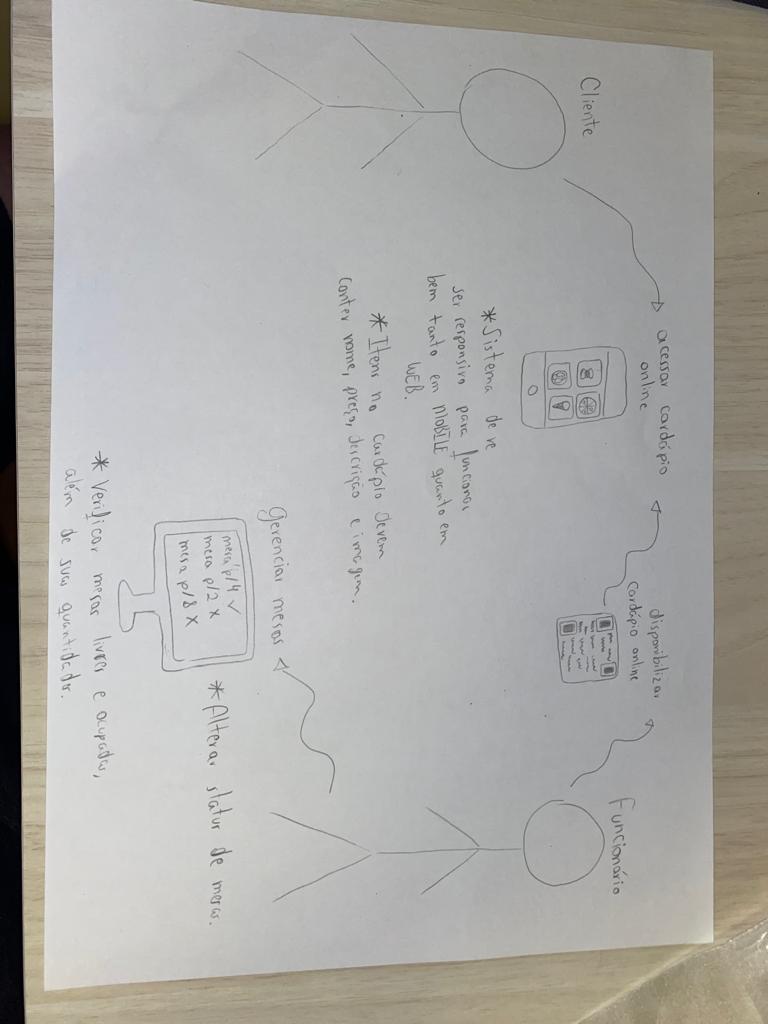 acessar cardápio
online
disponibilizar
cardápio online
Funcionário
Cliente
*Sistema de ve
ser responsivo para funcionar
bem tanto em MOBILE quanto em
WEB.
*Itens no cardápio devem
conter nome, preço, descrição e imagem.
Gerenciar mesas
mesa p/4 ✓
mesa p/2 X
mesa p/8 X
*Alterar status de mesas.
*Verificar mesas livres e ocupadas,
além de suas quantidades.